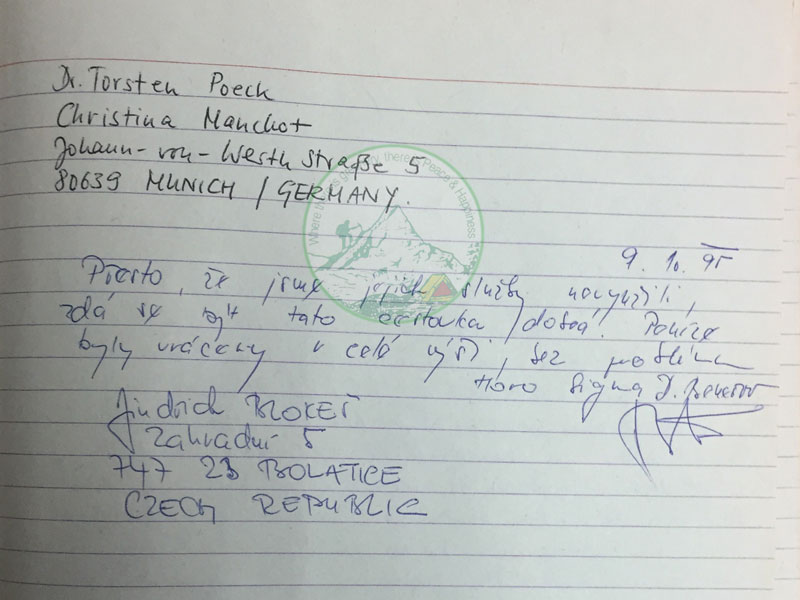 Dr. Torsten Poeck
Christina Manchot
Johann-von-Werth Straße 5
80639 MUNICH / GERMANY.
9. 10. 95
Přesto, že jsme jejich služby nevyužili,
zdá se být tato cestovka dobrá! Peníze
byly vráceny v celé výši, bez problému
Horo Sigma D. Benešov
Jindřich
Zahradní 5
747 23 BOLATICE
CZECH REPUBLIC
Where there is                there is Peace & Happiness